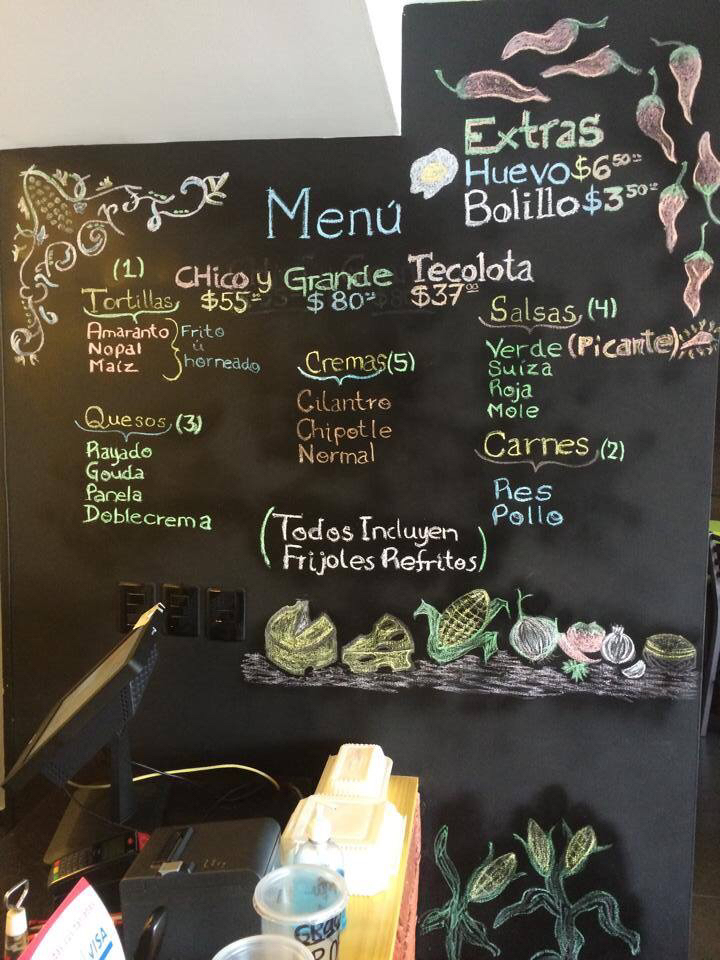 Extras
Huevo $6.50
Bolillo $3.50
Menú
(1)
CHico y Grande Tecolota
$55.00 $80.00 $37.00
Tortillas
Amaranto
Nopal
Maíz
Frito
ú
horneado
Salsas (4)
Verde (Picante)
Suiza
Roja
Mole
Cremas (5)
Cilantro
Chipotle
Normal
Quesos (3)
Rayado
Gouda
Panela
Doblecrema
Carnes (2)
Res
Pollo
(Todos Incluyen
Frijoles Refritos)
VISA